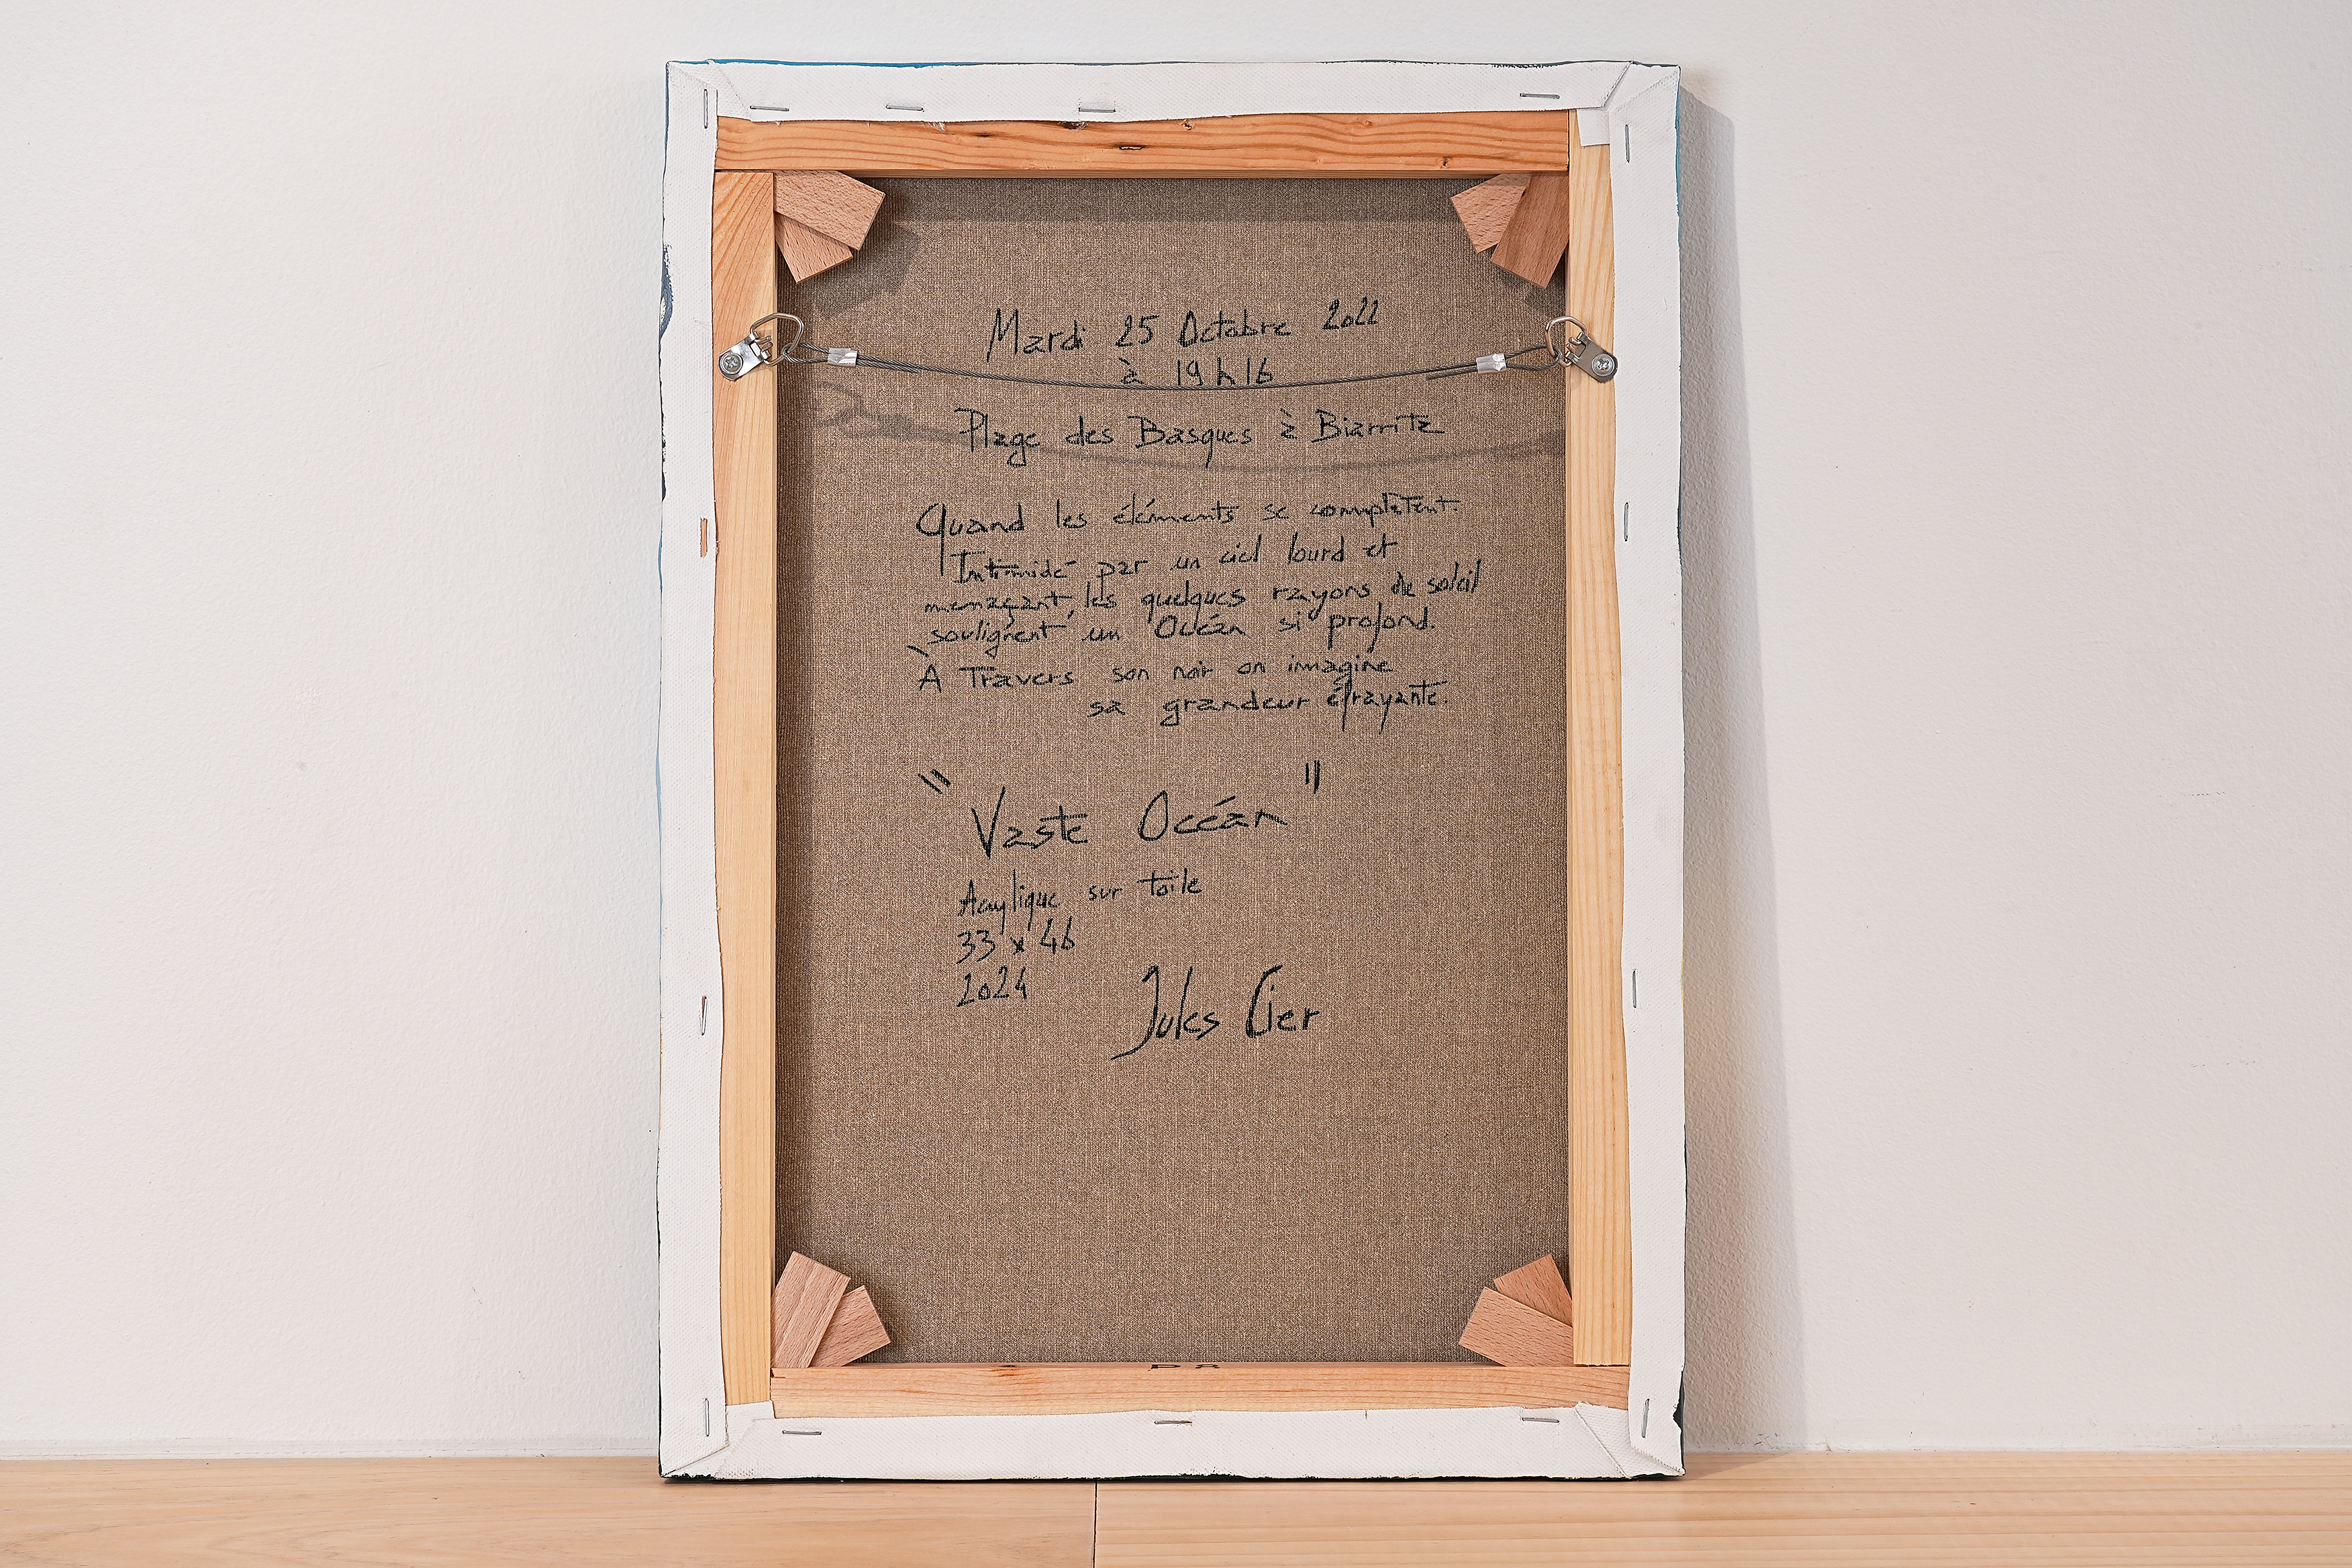 Mardi 25 Octobre 2022
à 19h16
Plage des Basques à Biarritz
Quand les éléments se complètent.
Intimidé par un ciel lourd et
menaçant, les quelques rayons de soleil
soulignent un Océan si profond.
À Travers son noir on imagine
sa grandeur éfrayante.
"Vaste Océan"
Acrylique sur toile
33 x 46
2024
Jules Cier